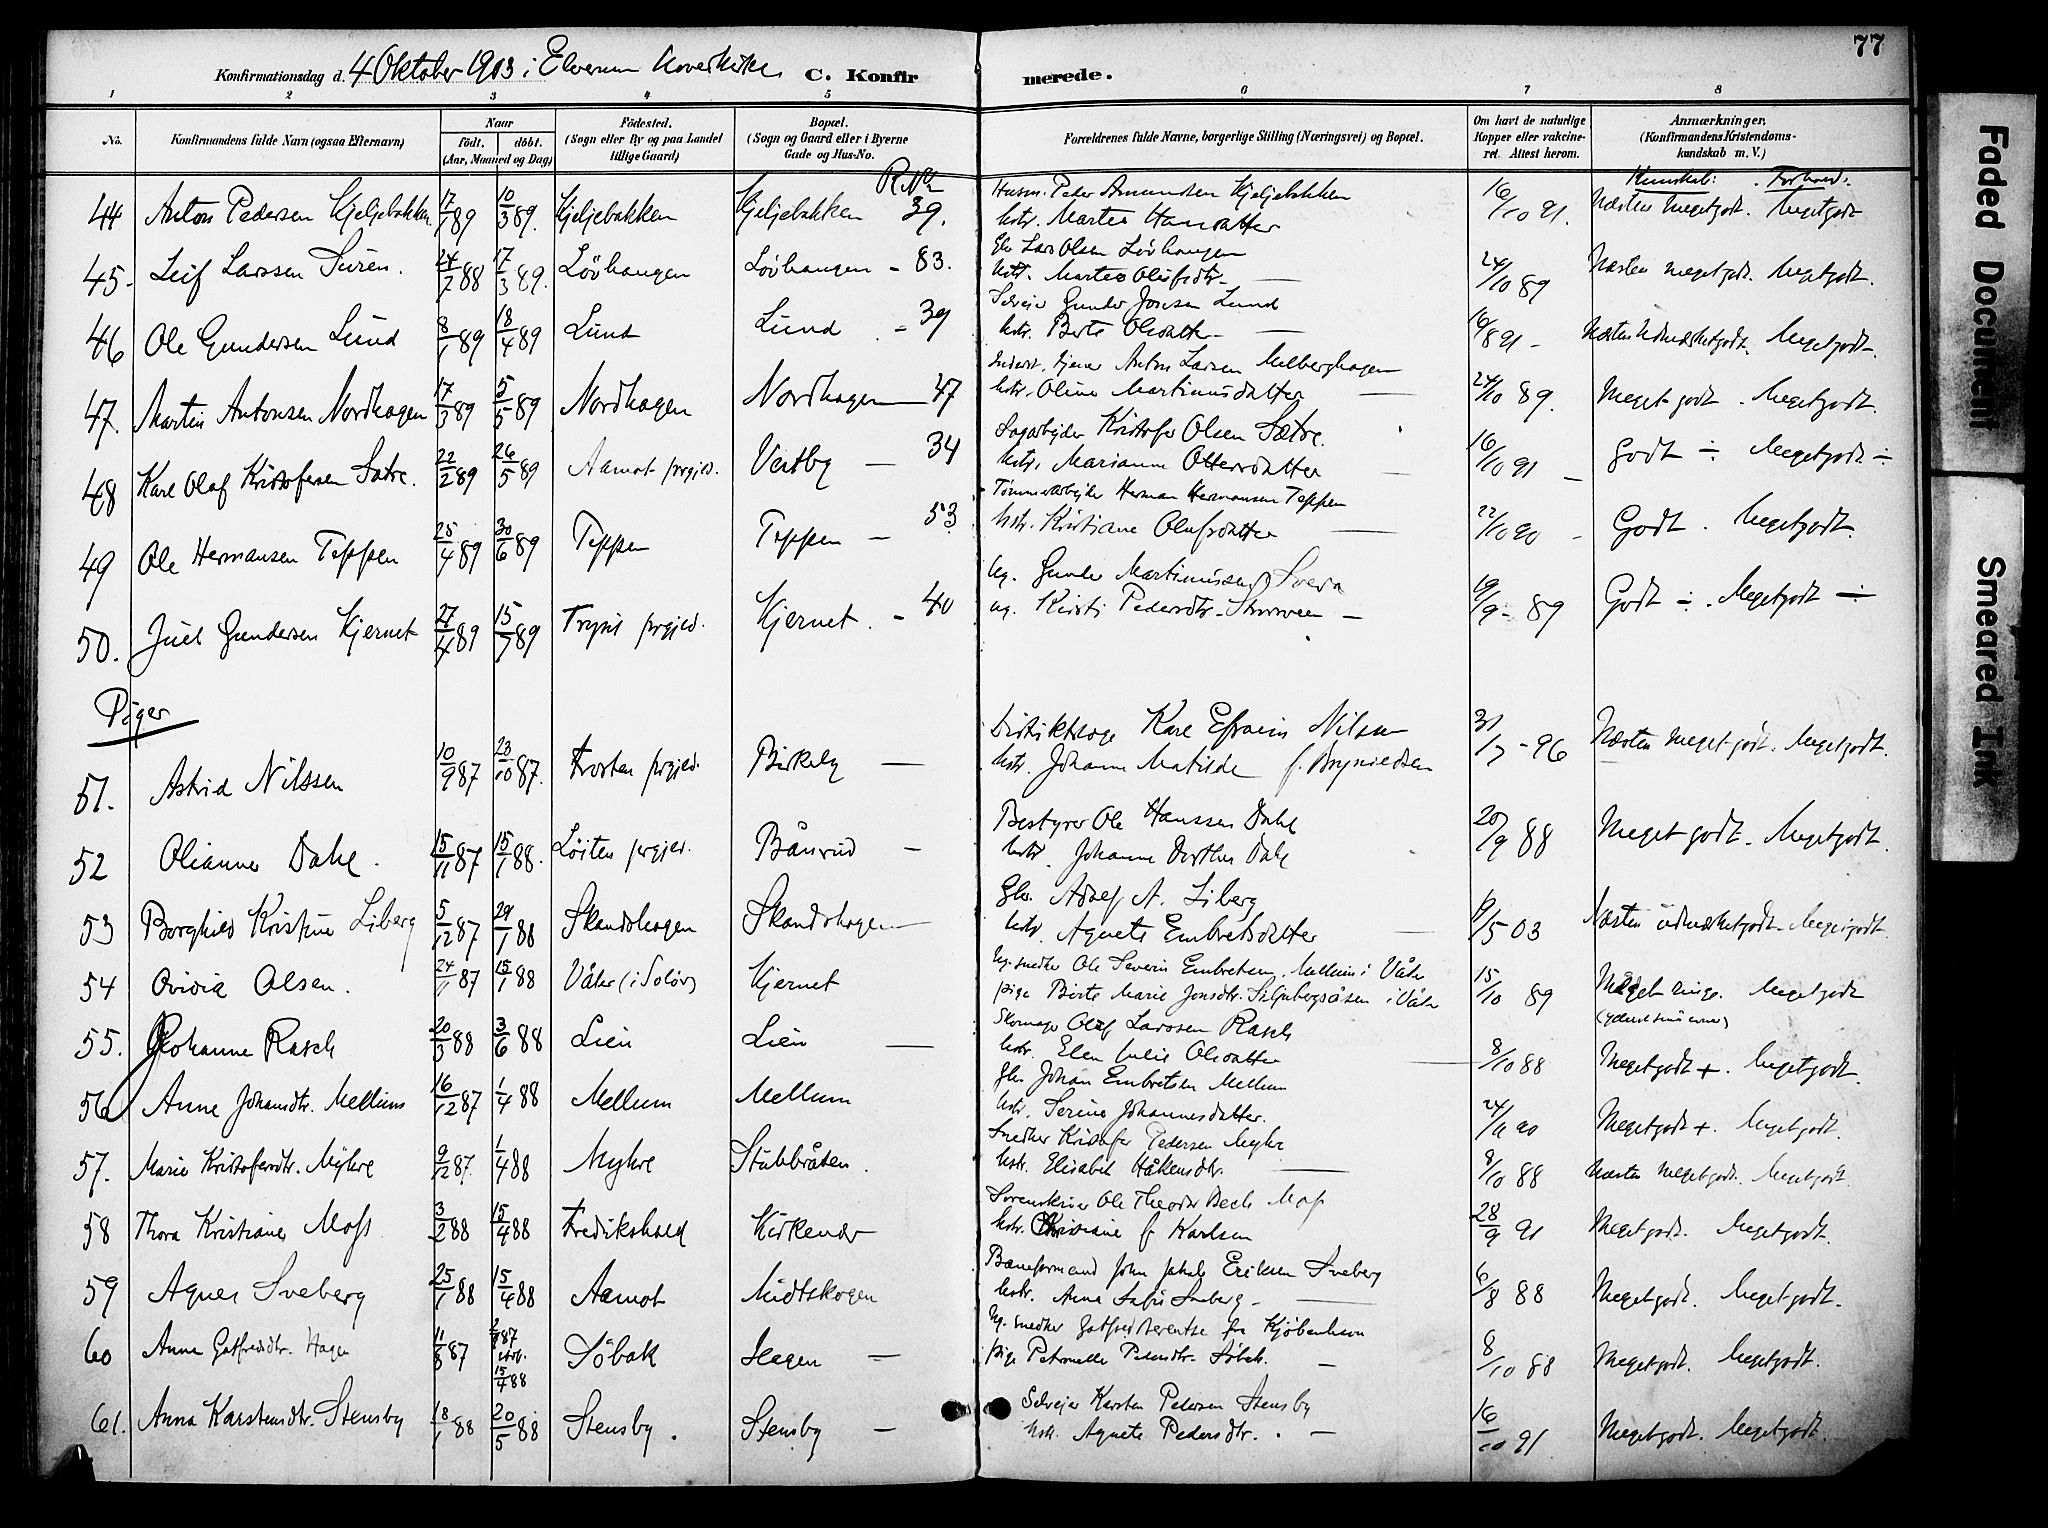 77
Konfirmationsdag d. 4 Oktober 1903 i Elverum Hovedkirke C. Konfirmerede.
1 2 3 4 5 6 7 8
No. Konfirmandens fulde Navn (ogsaa Efternavn) Naar født. døbt. (Aar, Maaned og Dag) Fødested. (Sogn eller By og paa Landet tillige Gaard) Bopæl. (Sogn og Gaard eller i Byerne Gade og Hus-No. Forældrenes fulde Navne, borgerlige Stilling (Næringsvei) og Bopæl. Om havt de naturlige Kopper eller vakcineret. Attest herom. Anmærkninger. (Konfirmandens Kristendomskundskab m. V.)
R.No Kunskab: Forhold:
44 Anton Pedersen Kjeljebakken 89 10/3 89. Kjeljebakken Kjeljebakken 39. Husm. Peder Amundsen Kjeljebakken
hstr. Marte Hansdatter 16/10 91. Næsten meget godt. Megetgodt
45. Leif Larssen 88 17/3 89. Løvhaugen Løvhaugen - 83. Lars Olsen Løvhaugen
hstr. Marte Olufsdtr. — 24/10 89 Næsten meget godt. Megetgodt.
46 Ole Gundersen Lund 8/1 89 18/4 89 Lund Lund - 39 Selveier Gunder Jonsen Lund
hstr. Berte Olsdatter — 91 - Næsten udmærketgodt. Megetgodt.
47. Martin Antonsen Nordhagen 17/3 89 5/5 89 Nordhagen Nordhagen 47 Anton Larsen
hstr. Oline Martinusdatter — 24/10 89. Meget godt. Megetgodt.
48 Karl Olaf Kristofersen Sætre. 22/2 89 26/5 89 Aamot prgjeld. Vestby — 34 Sagarbejder Kristofer Olsen Sætre.
hstr. Marianne Ottersdatter — 16/10 91 Godt ÷ Megetgodt ÷
49 Ole Hermansen Teppen 25/4 89 30/6 89 Teppen Teppen — 53 Tømmerarbejder Herman Hermansen Teppen
hstr. Kristiane Olufsdatter — 22/10 90 - Godt. Megetgodt.
50. Juel Gundersen Kjernet 27/4 89 15/7 89 Trysil prgjeld. Kjernet - 40 Ug. Gunder Martinussen
ug. Kirsti Pedersdtr. — /9 - 89 Godt ÷. Megetgodt ÷
Piger
51. Astrid Nilssen 10/9 87 23/10 87. Frosten prgjeld. Birkely — Distriktslæge Karl Efraim Nilssen
hstr. Johanne Matilde f. Brynildsen 31/7 - 96 Næsten meget godt. Megetgodt.
52 Olianne Dahl. 15/11 87 15/1 88. Løiten prgjeld. Bånrud — Bestyrer Ole Hanssen Dahl
hstr. Johanne Dorthea Dahl 20/9 88 Meget godt. Megetgodt.
53 Borghild Kristine Liberg 5/12 87 29/1 88 Skandshagen Skandshagen Gbr. Adolf A. Liberg
hstr. Agnete Embretsdatter — /5 03 Næsten udmærketgodt. Megetgodt.
54 Ovidia Olsen. 24/11 87 15/1 88 Våler (i Solør) Kjernet Ug. snedker Ole Severin Embretsen Mellum i Våler
pige Birte Marie Jonsdtr. i Våler 15/10 89 Meget ringe. Megetgodt
55. Johanne Rasch 20/3 88 3/6 88 Lien Lien — Skomager Oluf Larssen Rasch
hstr. Elen Julie Olsdatter — 8/10 88 Megetgodt +. Megetgodt.
56 Anne Johansdtr. Mellum 16/12 87 1/4 88 Mellum Mellum Gbr. Johan Embretsen Mellum
hstr. Serine Johannesdatter. 24/11 90 Megetgodt +. Megetgodt.
57. Marie Kristofersdtr. Myhre 9/12 87. 1/4 88 Myhre Stubbråten. Snedker Kristofer Pedersen Myhre
hstr. Elisabet Håkensdtr. — 8/10 88 Næsten megetgodt. Megetgodt.
58 Thora Kristiane Moss 3/2 88 15/4 88 Fredrikshald Kirkenær Sorenskriver Ole Theodor Bech Moss
hstr. Kristiane f. Karlsen 28/9 91 Megetgodt. Megetgodt.
59 Agnes Sveberg 25/1 88 15/4 88 Aamot Midtskogen Baneformand John Jakob Eriksen Sveberg
hstr. Anna Sofie Sveberg. — 6/8 88 Megetgodt. Megetgodt.
60 Anna Gotfredsdtr. Hagen 11/8 87 15/4 88 Søbak Hagen — Ug. snedker Gotfred fra Kjøbenhavn
pige Petronelle Pedersdtr. Søbak. — 8/10 88 Megetgodt. Megetgodt.
61. Anna Karstensdtr. Stensby 18/1 88 20/5 88 Stensby. Stensby — Selveier Karsten Pedersen Stensby
hstr. Agnete Pedersdtr. — 16/10 91 Megetgodt. Megetgodt.
Faded Document
Smeared Ink